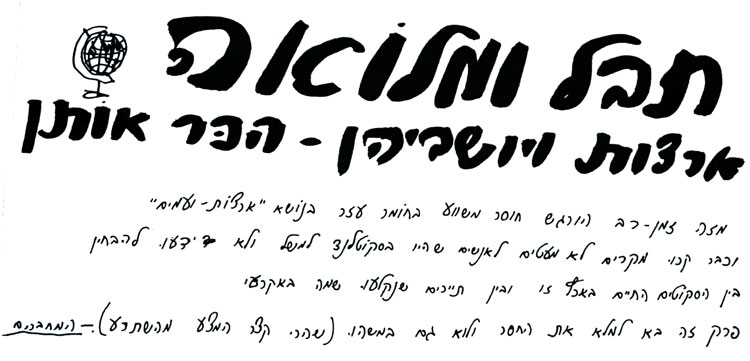 תבל ומלואה
ארצות ויושביהן - הכר אותן
מזה זמן-רב היורגש חוסר משווע בחומר עזר בנושא "ארצות-ועמים"
וכבר קרו מקרים לא מעטים לאנשים שהיו בסקוטלנד למשל ולא ידעו להבחין
בין הסקוטים החיים בארץ זו ובין תיירים שנקלעו שמה באקראי
פרק זה בא למלא את החסר ולוא גם במשהו. (שהרי קצר המצע מהשתרע). - המחברים